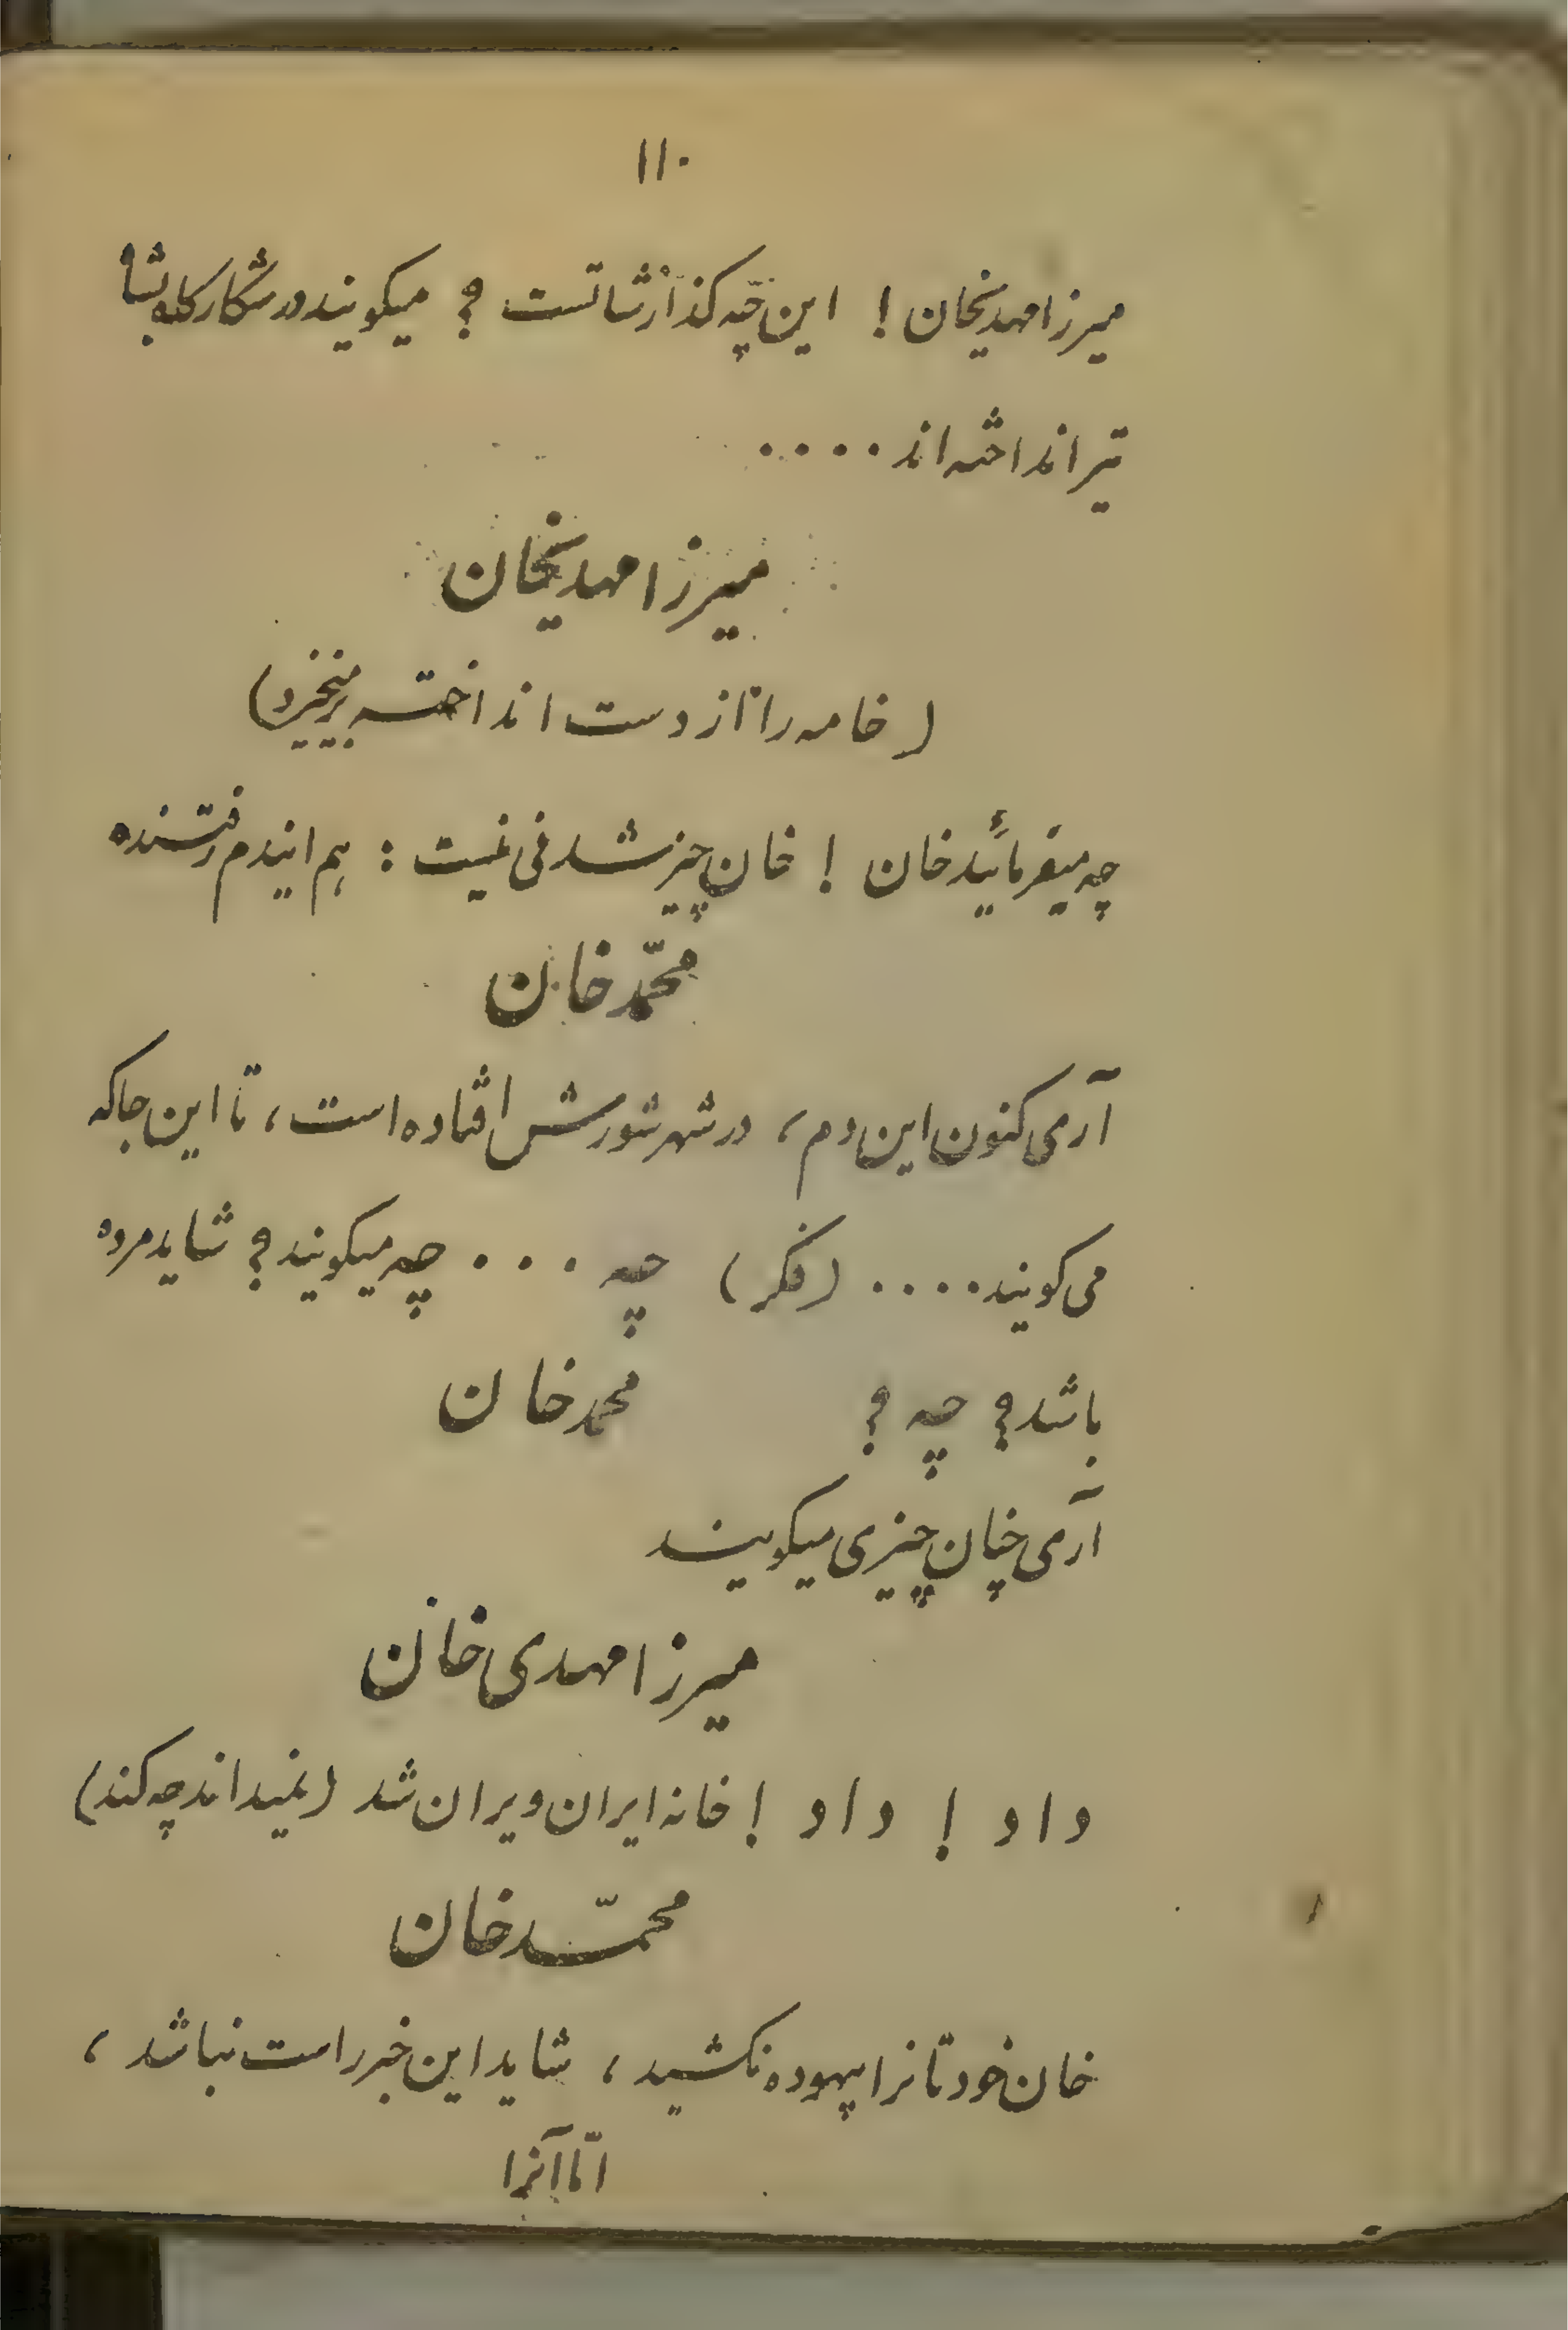 ۱۱۰
میرزا مهدیخان ! این چه گذارشاتست ؟ میگویند در شکارگاه بشا
تیر انداخته اند ....
میرزا مهدیخان
( خامه را از دست انداخته برمیخیزد )
چه میفرمائید خان ! خان چیز شدنی نیست : هم ایندم
محمّد خان
آری کنون این دم ، در شهر شورش افتاده است ، تا این جا که
می گویند .... ( فکر ) چه ... چه میگویند ؟ شاید مرده
باشد ؟ چه ؟ محمد خان
آری چنان چیزی میگویند
میرزا مهدی خان
داد ! داد ! خانه ایران ویران شد ( نمیداند چه کند )
محمّد خان
خان خودتانرا بیهوده نکشید ، شاید این خبر راست نباشد ،
امّا آنرا